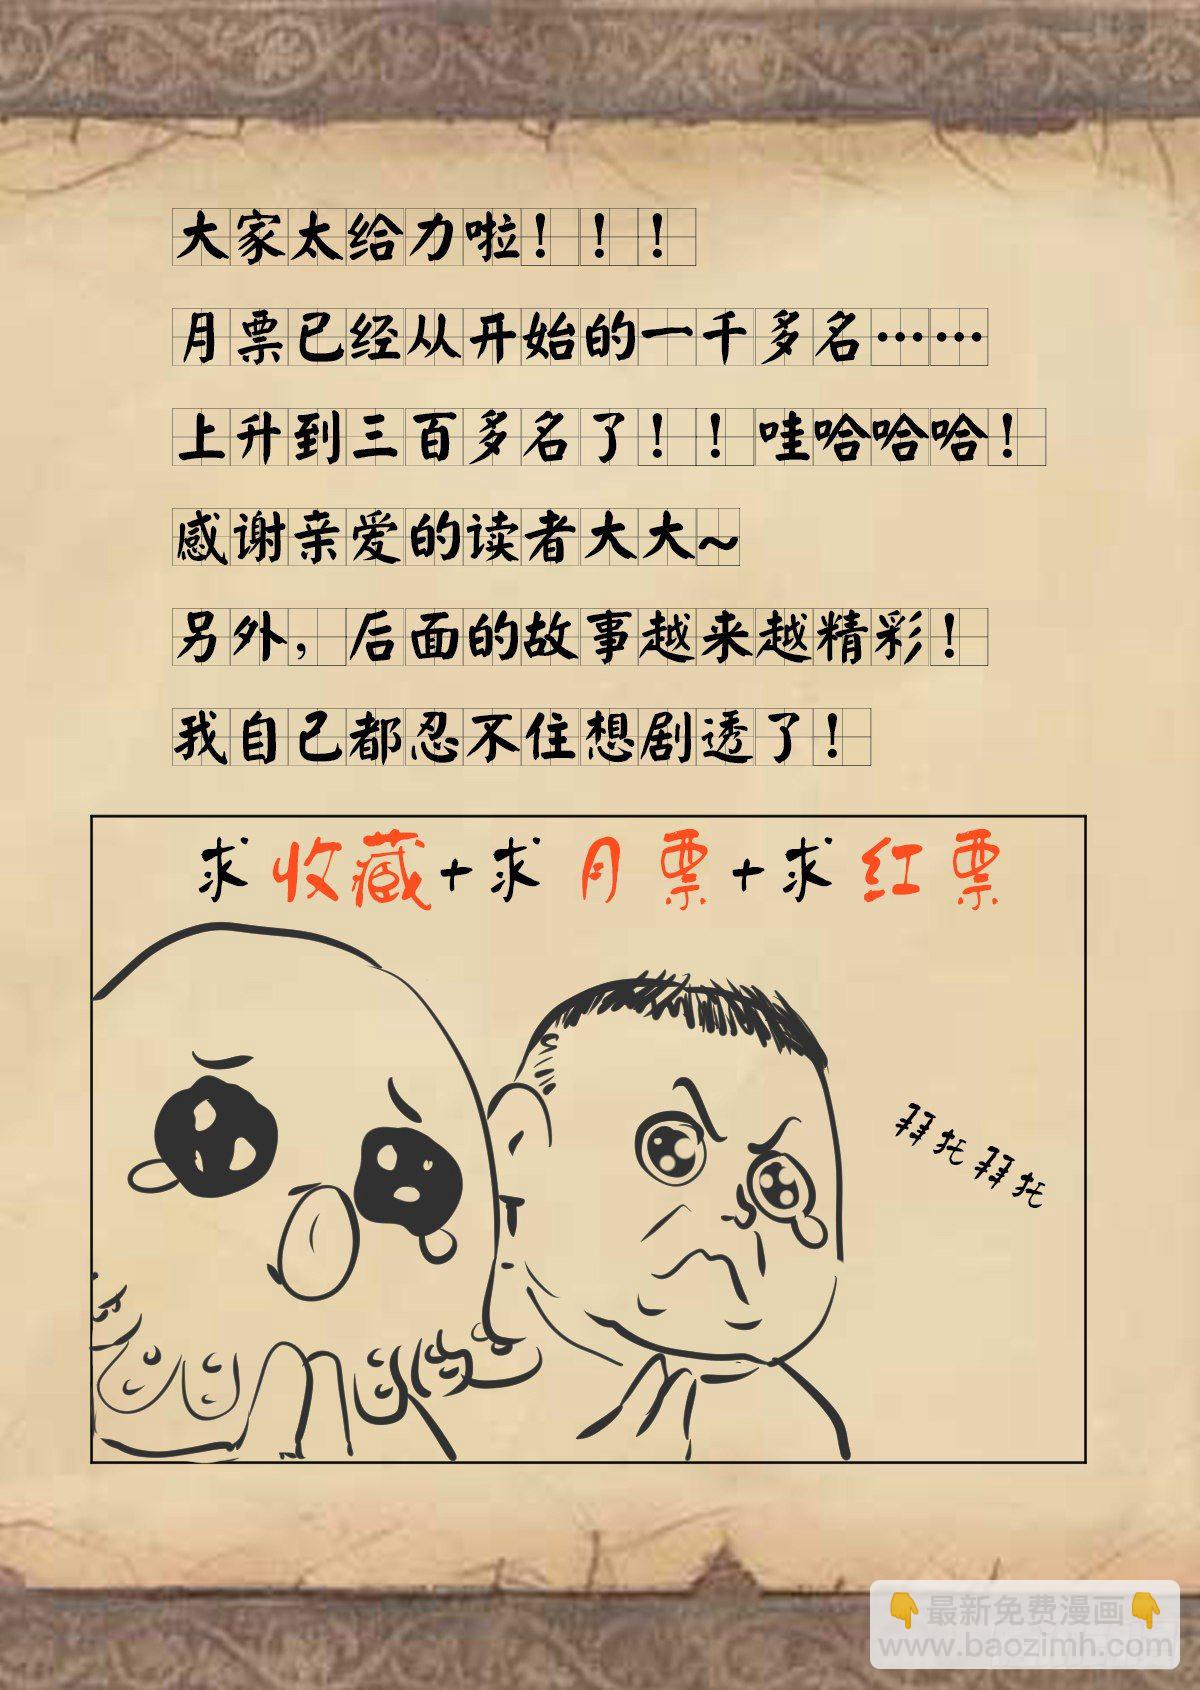 大家太给力啦！！！
月票已经从开始的一千多名……
上升到三百多名了！！哇哈哈哈！
感谢亲爱的读者大大~
另外，后面的故事越来越精彩！
我自己都忍不住想剧透了！
求收藏+求月票+求红票
拜托拜托
👇最新免费漫画👇
www.baozimh.com